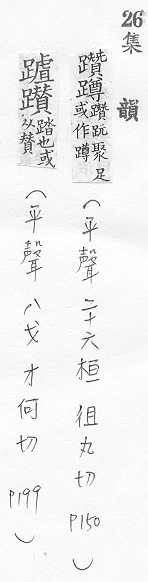 26 集韻
躦蹲
躦 聚足
或作蹲
(平聲 二十六桓 徂丸切 P150)
躦
踏也或
从贊
(平聲 八戈 才何切 P199)